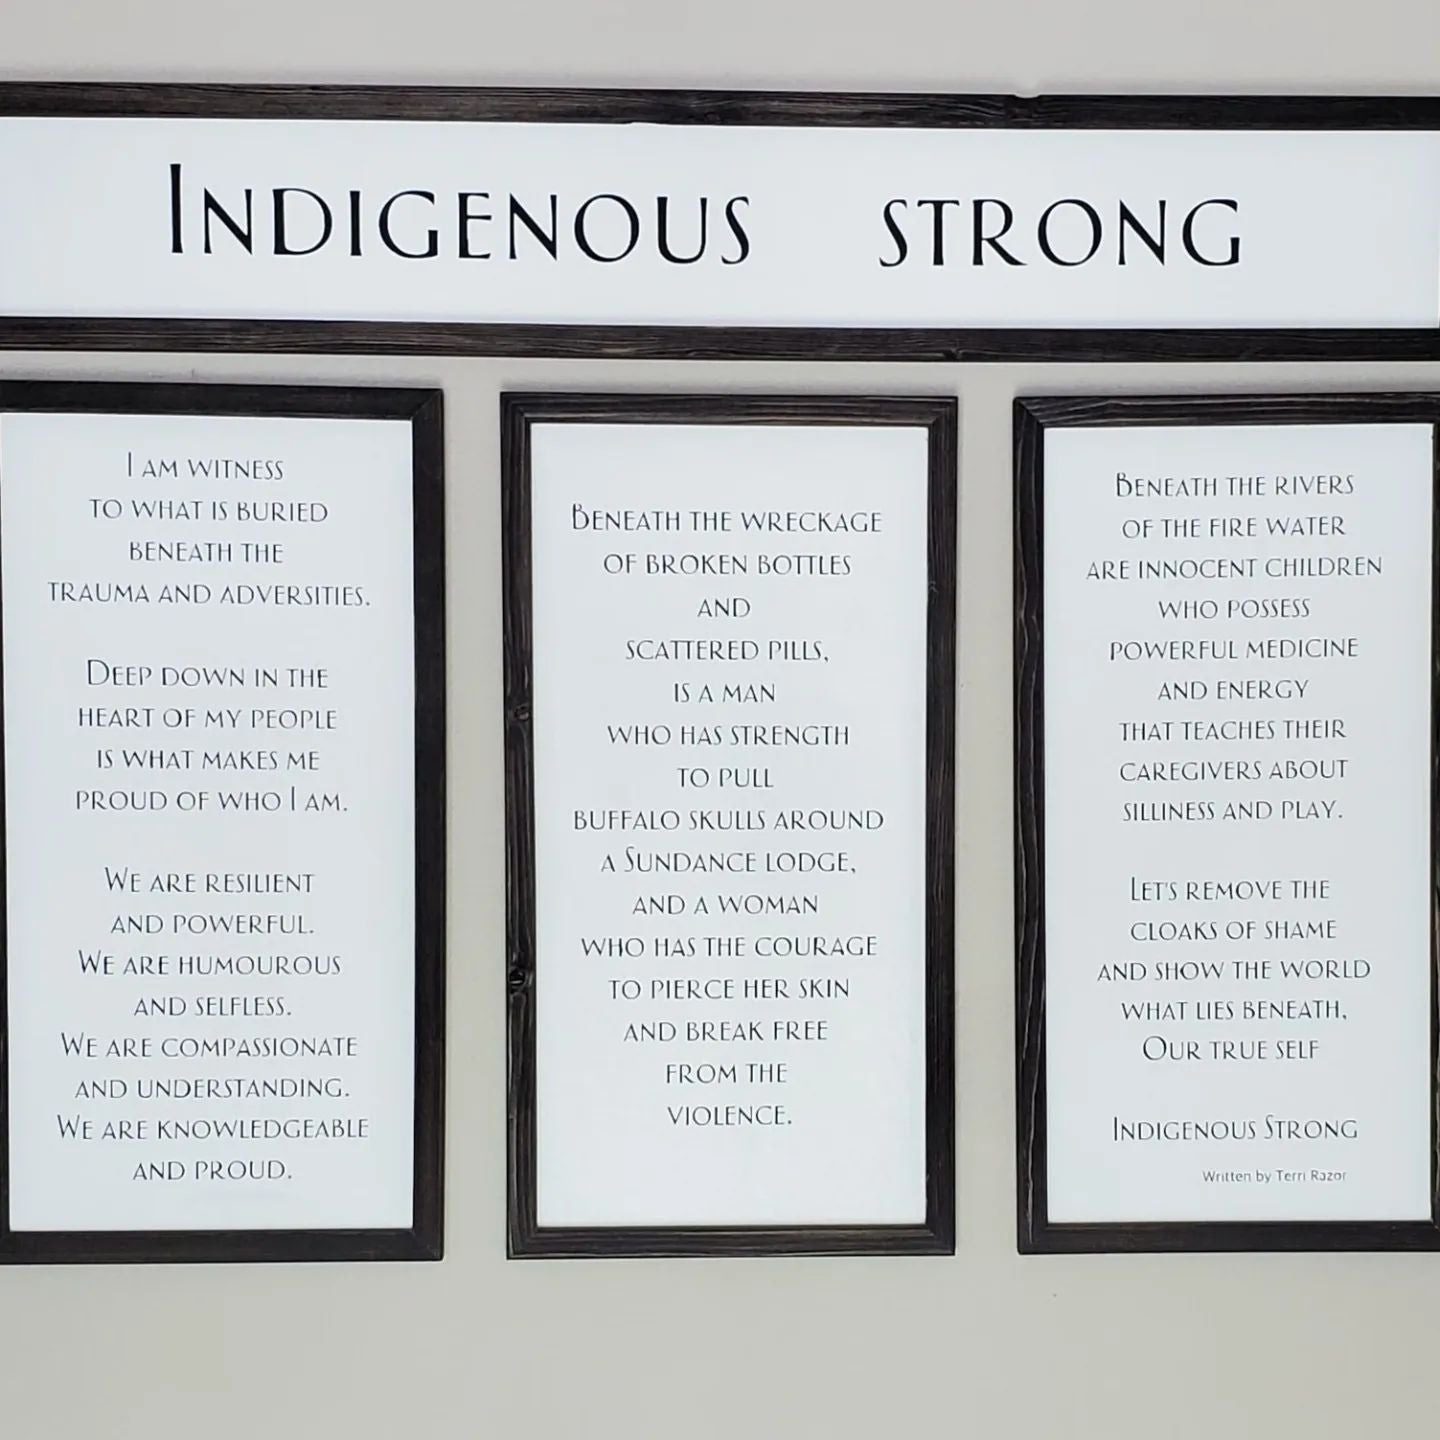 Indigenous strong
I am witness
to what is buried
beneath the
trauma and adversities.
Deep down in the
heart of my people
is what makes me
proud of who I am.
We are resilient
and powerful.
We are humourous
and selfless.
We are compassionate
and understanding.
We are knowledgeable
and proud.
Beneath the wreckage
of broken bottles
and
scattered pills,
is a man
who has strength
to pull
buffalo skulls around
a Sundance lodge,
and a woman
who has the courage
to pierce her skin
and break free
from the
violence.
Beneath the rivers
of the fire water
are innocent children
who possess
powerful medicine
and energy
that teaches their
caregivers about
silliness and play.
Let's remove the
cloaks of shame
and show the world
what lies beneath,
Our true self
Indigenous Strong
Written by Terri Razor